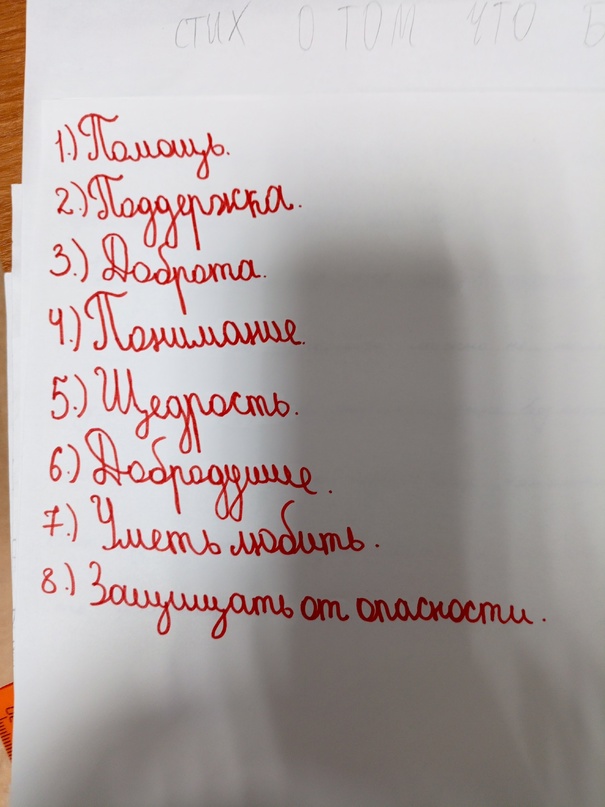 СТИХ О ТОМ ЧТО Б
1.) Помощь.
2.) Поддержка.
3.) Доброта.
4.) Понимание.
5.) Щедрость.
6.) Добродушие.
7.) Уметь любить.
8.) Защищать от опасности.